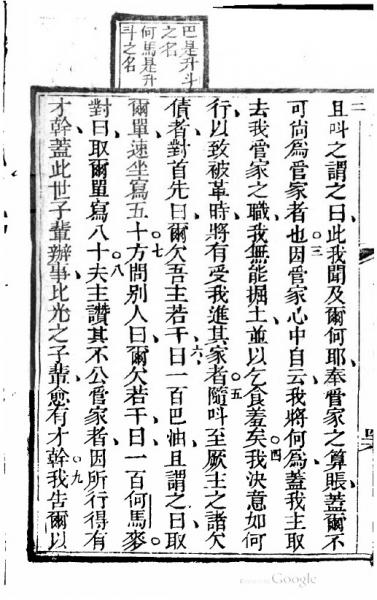 巴是升斗
之名
何馬是升
斗之名
二
且叫之謂之曰此我聞及爾何耶奉管家之算賬蓋爾不
可尙為管家者也○三因管家心中自云我將何為蓋我主取
去我管家之職我無能掘土並以乞食羞矣○四我決意如何
行以致被革時將有受我進其家者○五隨叫至厥主之諸欠
債者對首先曰爾欠吾主若干○六曰一百巴油且謂之曰取
爾單速坐寫五十○七方問別人曰爾欠若干曰一百何馬麥
對曰取爾單寫八十○八夫主讚其不公管家者因所行得有
才幹蓋此世子輩辦事比光之子輩愈有才幹○九我告爾以
Google